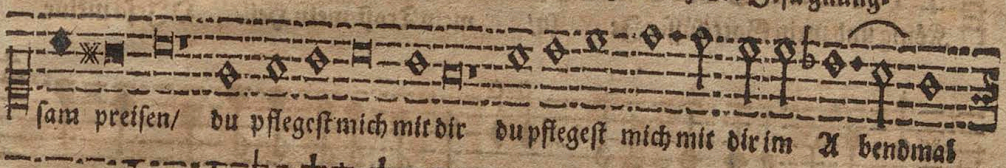 ſam preiſen/ du pflegeſt mich mit dir du pflegeſt mich mit dir im A bendmal